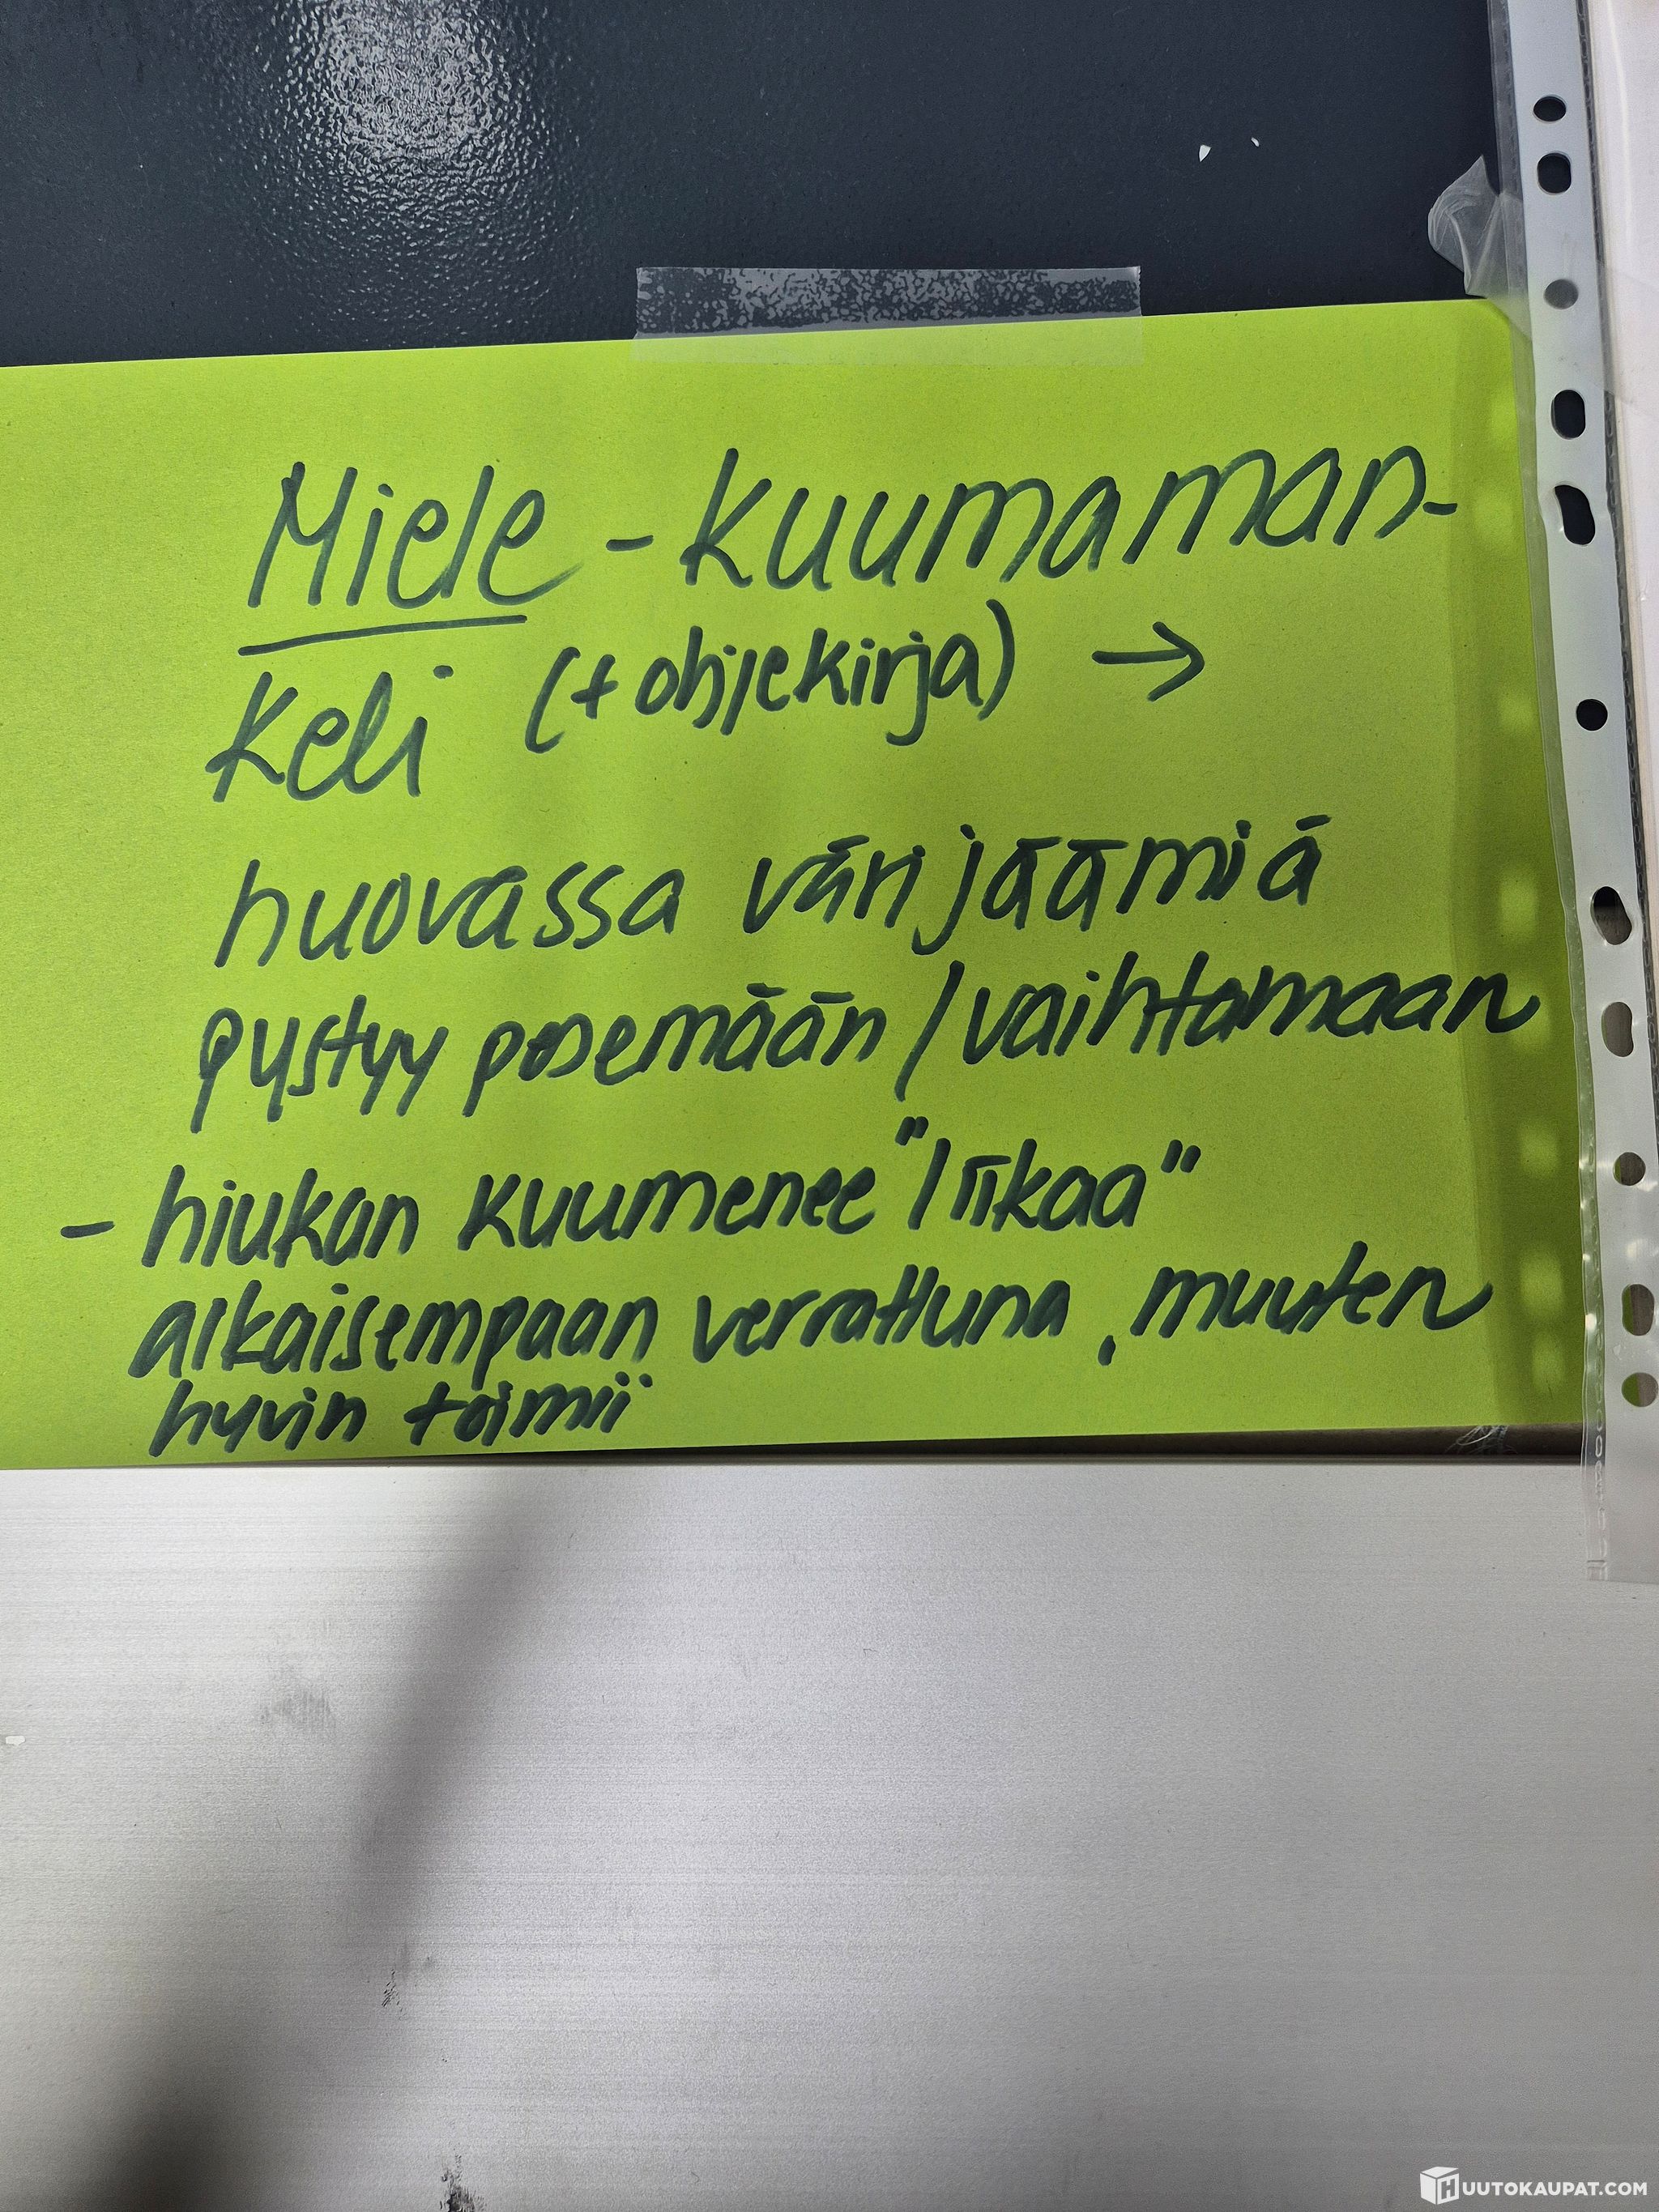 Miele - kuumaman-
keli (+ ohjekirja) →
huovassa värijäämiä
pystyy pesemään / vaihtamaan
- hiukan kuumenee "liikaa"
aikaisempaan verrattuna, muuten
hyvin toimii
HUUTOKAUPAT.COM